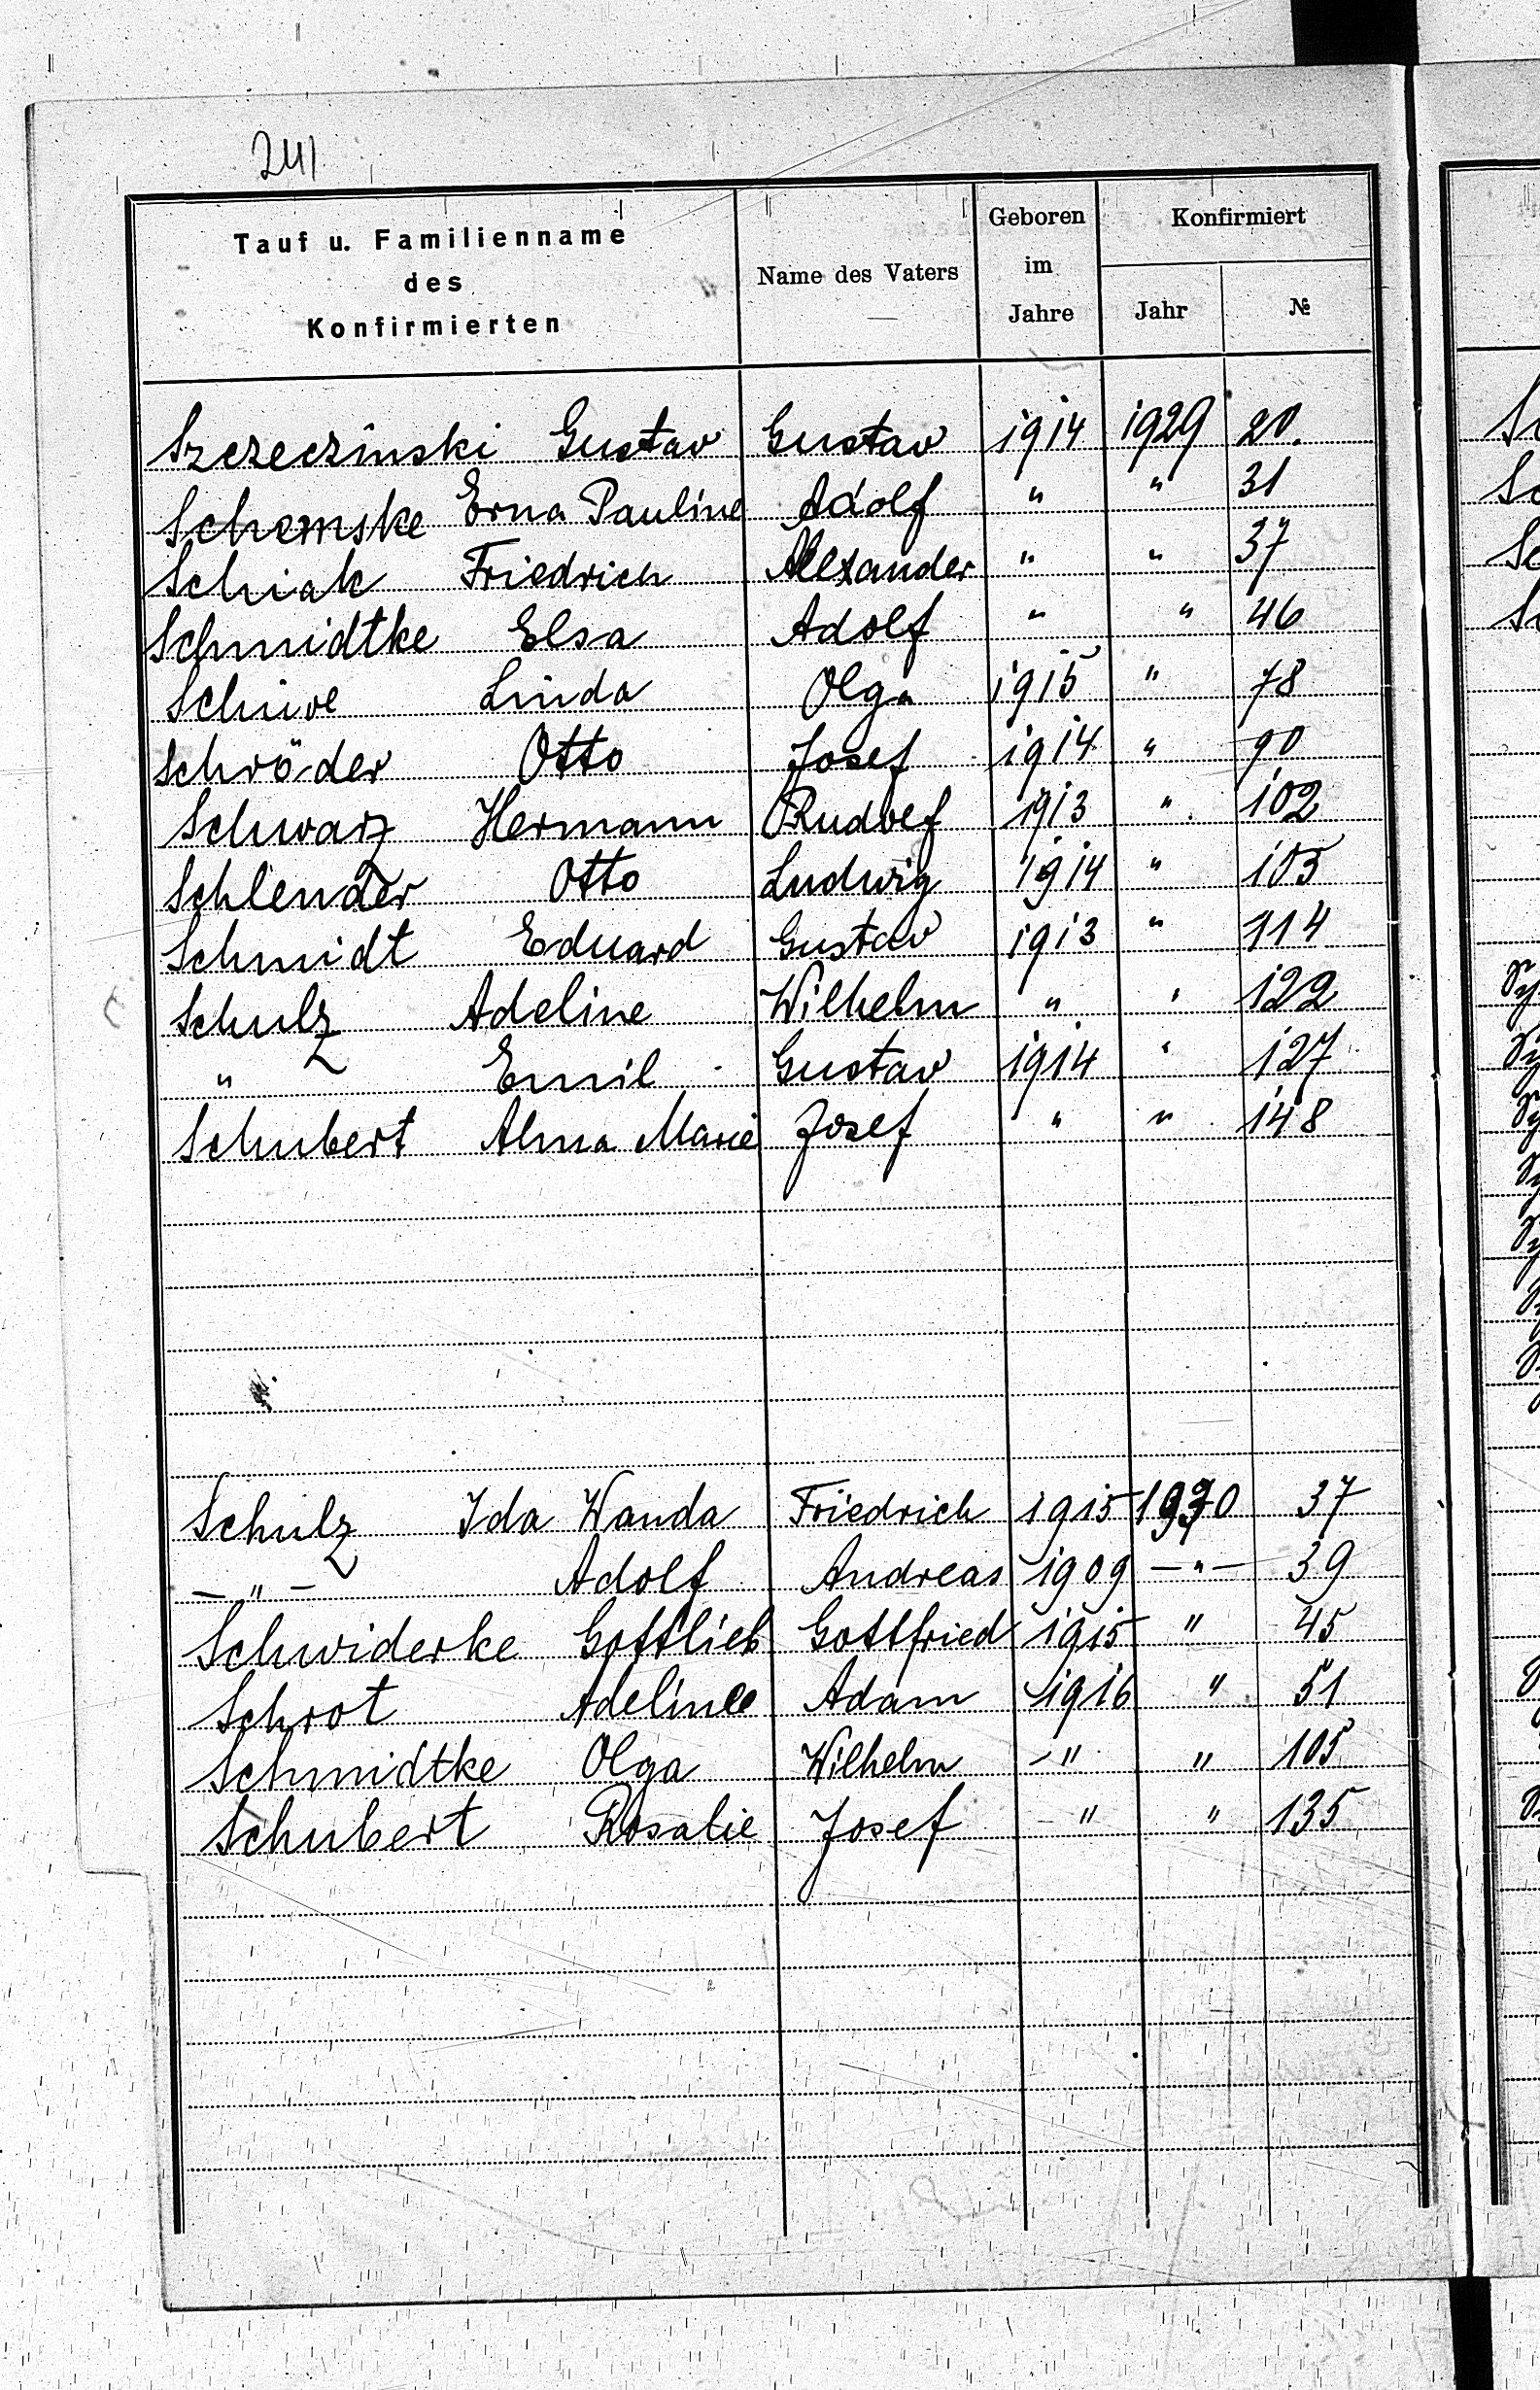 241
Tauf u. Familienname des Konfirmierten | Name des Vaters | Geboren im Jahre | Konfirmiert Jahr | №
Szczeczinski Gustav Gustav 1914 1929 20.
Schemske Erna Pauline Adolf " " 31
Schiak Friedrich Alexander " " 37
Schmidtke Elsa Adolf " " 46
Schive Linda Olga 1915 " 78
Schröder Otto Josef 1914 " 90
Schwarz Hermann Rudolf 1913 " 102
Schlender Otto Ludwig 1914 " 103
Schmidt Eduard Gustav 1913 " 114
Schulz Adeline Wilhelm " " 122
" Emil Gustav 1914 " 127
Schubert Alma Marie Josef " " 148
Schulz Ida Wanda Friedrich 1915 1930 37
— " — Adolf Andreas 1909 — " — 39
Schwiderke Gottlieb Gottfried 1915 " 45
Schrot Adeline Adam 1916 " 51
Schmidtke Olga Wilhelm - " " 105
Schubert Rosalie Josef " " 135